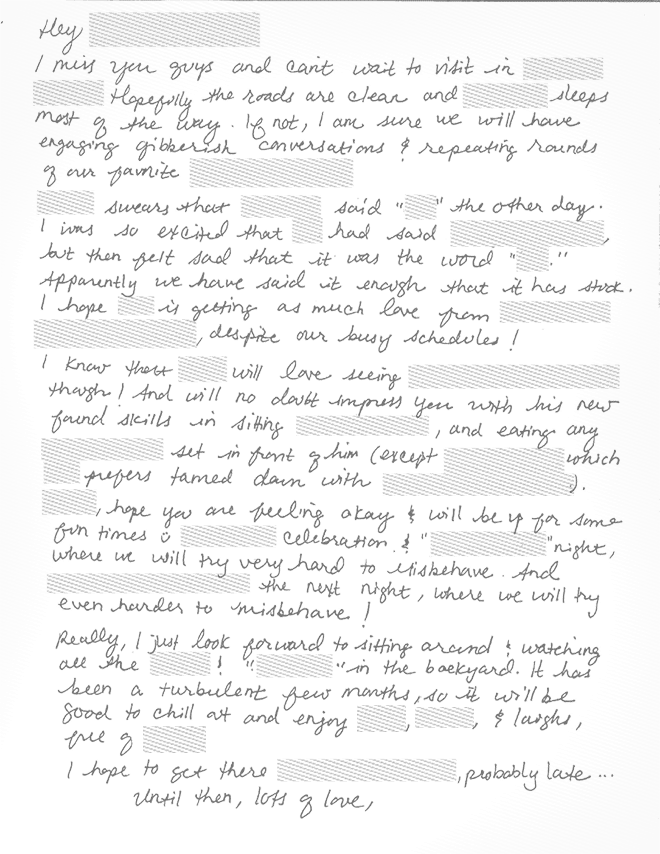 Hey
I miss you guys and can't wait to visit in
Hopefully the roads are clear and sleeps
most of the way. If not, I am sure we will have
engaging gibberish conversations & repeating rounds
of our favorite
swears that said " " the other day.
I was so excited that had said ,
but then felt sad that it was the word " ."
Apparently we have said it enough that it has stuck.
I hope is getting as much love from
, despite our busy schedules!
I know that will love seeing
though! And will no doubt impress you with his new
found skills in sitting , and eating any
set in front of him (except which
prefers tamed down with ).
, hope you are feeling okay & will be up for some
fun times celebration & " " night,
where we will try very hard to misbehave. And
the next night, where we will try
even harder to misbehave!
Really, I just look forward to sitting around & watching
all the & " " in the backyard. It has
been a turbulent few months, so it will be
good to chill at and enjoy , , & laughs,
free of
I hope to get there , probably late ...
Until then, lots of love,